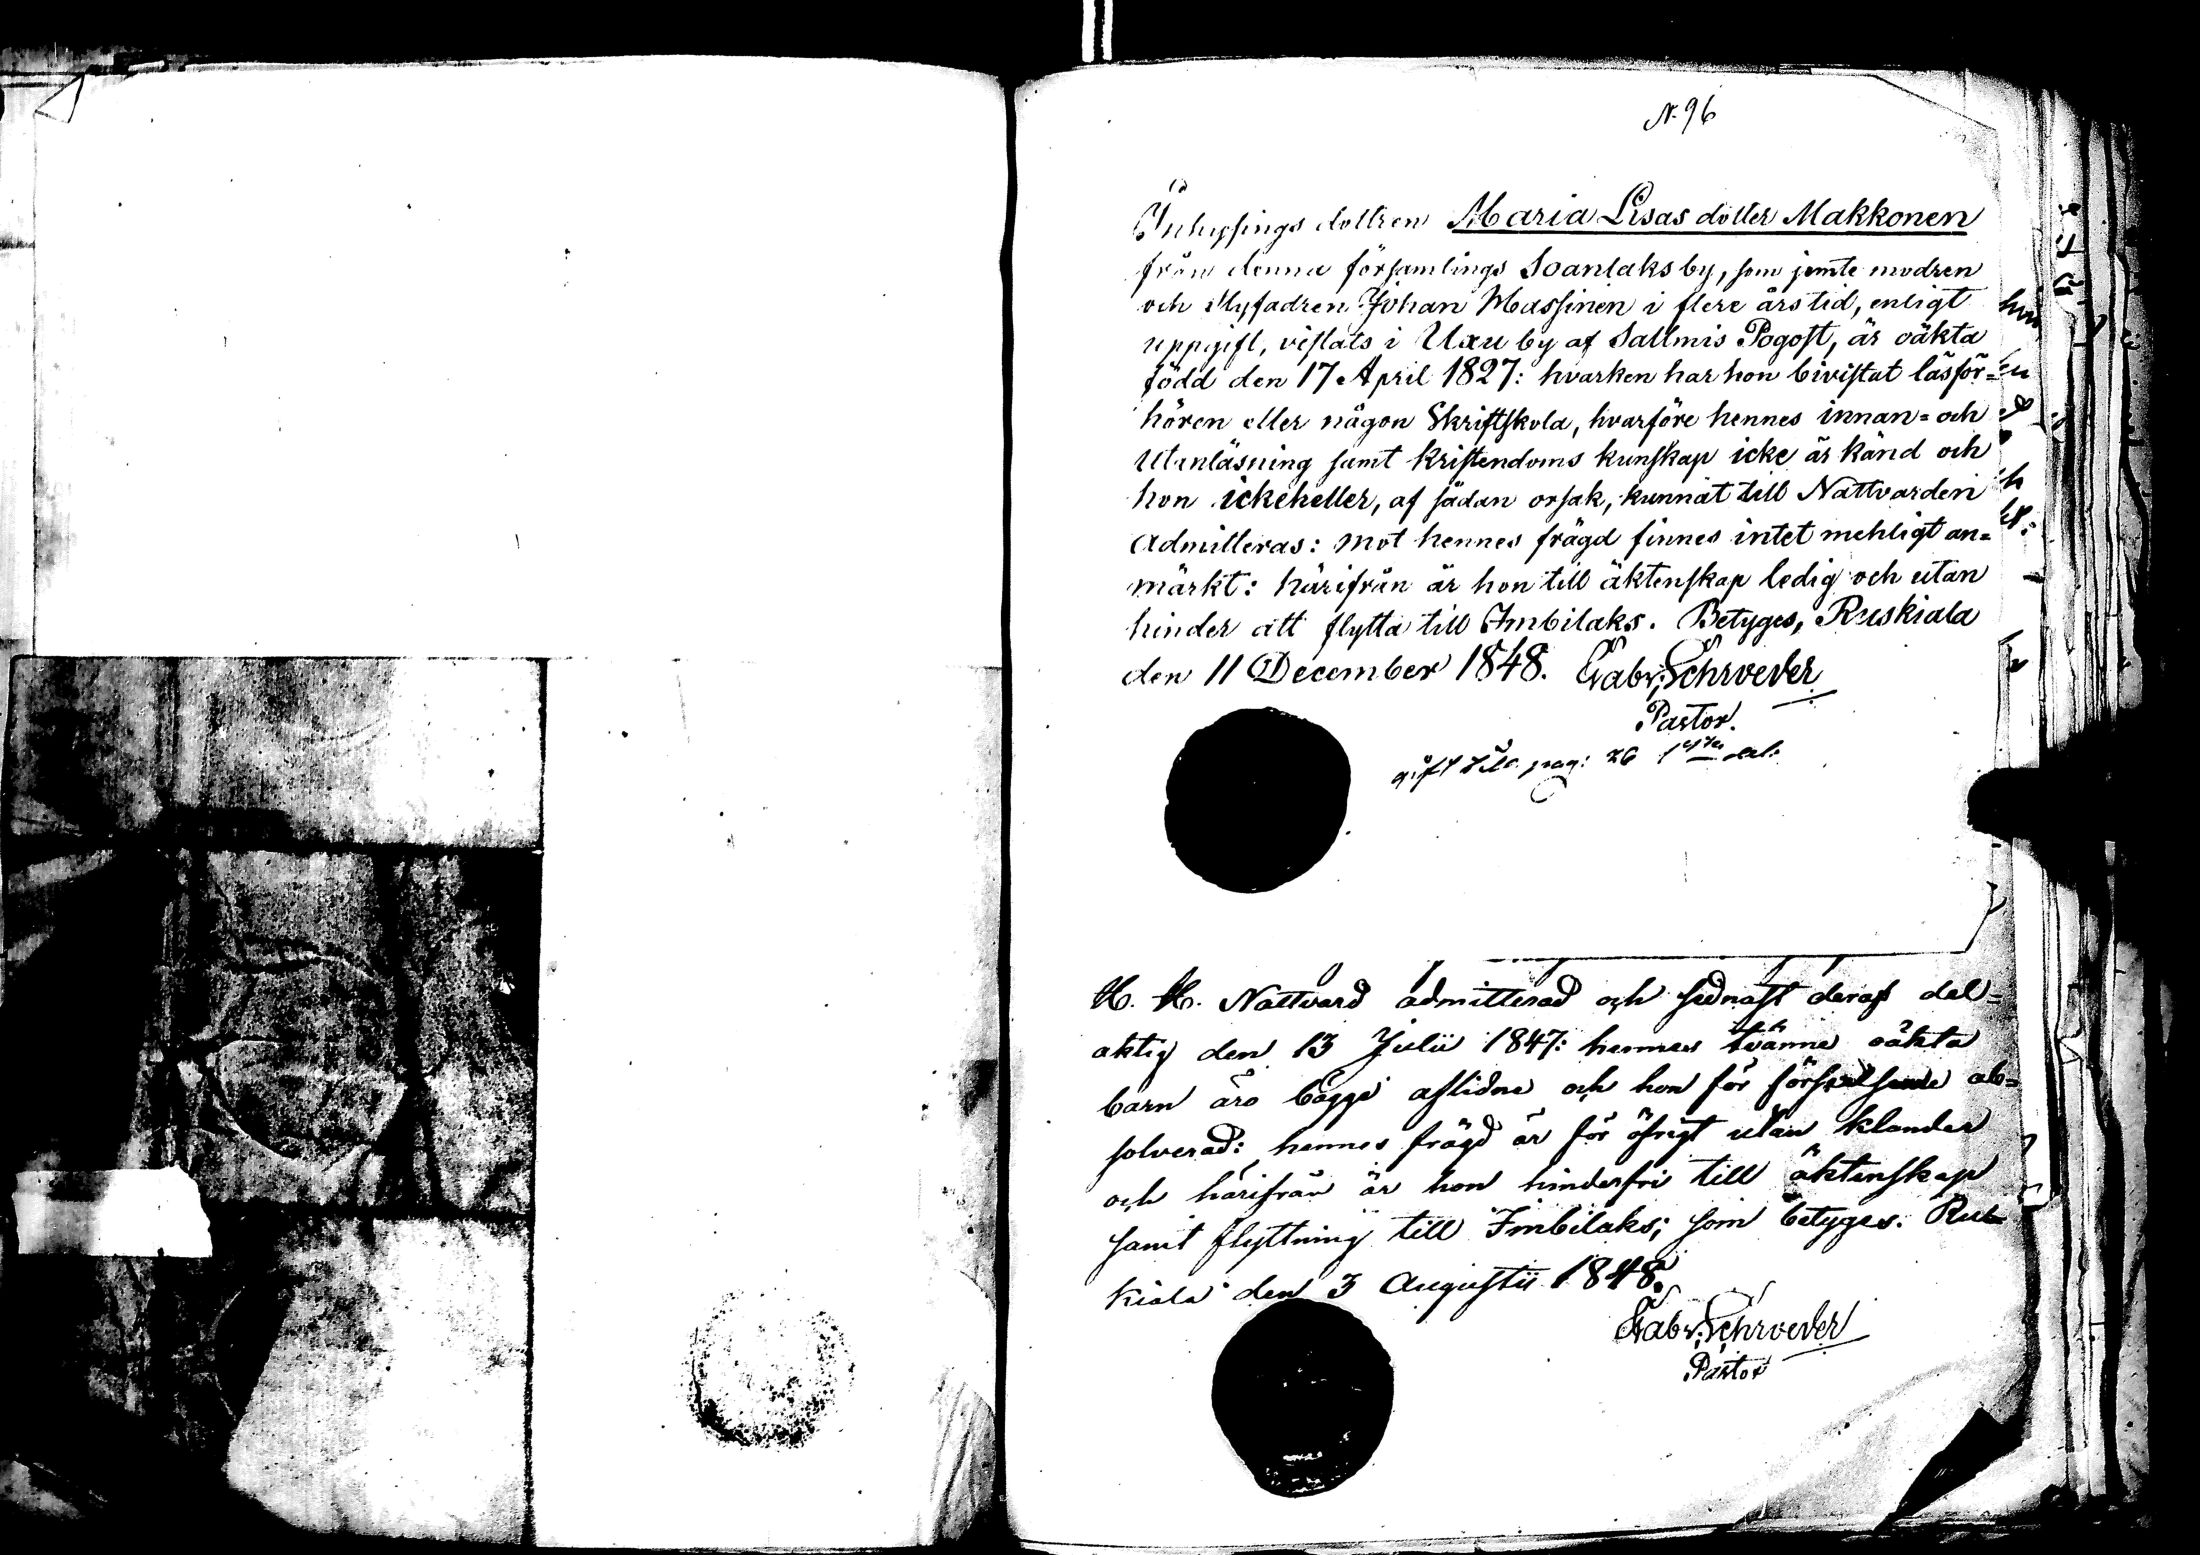 N. 96
Inhysings dottren Maria Lisas dotter Makkonen
från denna församlings Soanlaks by, som jemte modren
och styfadren Johan Massinen i flere års tid, enligt
uppgift, vistats i Uxu by af Sallmis Pogost, är oäkta
född den 17 April 1827: hvarken har hon bivistat läsför=
hören eller någon Skriftskola, hvarföre hennes innan= och
utanläsning samt kristendoms kunskap icke är känd och
hon ickeheller, af sådan orsak, kunnat till Nattvarden
admitteras: mot hennes frägd finnes intet mehligt an=
märkt: härifrån är hon till äktenskap ledig och utan
hinder att flytta till Imbilaks. Betyges, Ruskiala
den 11 December 1848. Gabr: Schroeder
Pastor.
gift till pag: 26 1
H. H. Nattvard admitterad och sednast deraf del=
aktig den 13 Julii 1847: hennes tvänne oäkta
barn äro bägge aflidne och hon för förseelserne ab=
solverad: hennes frägd är för öfrigt utan klander
och härifrån är hon hinderfri till äktenskap
samt flyttning till Imbilaks; som betyges. Rus=
kiala den 3 Augustii 1848.
Gabr: Schroeder
Pastor